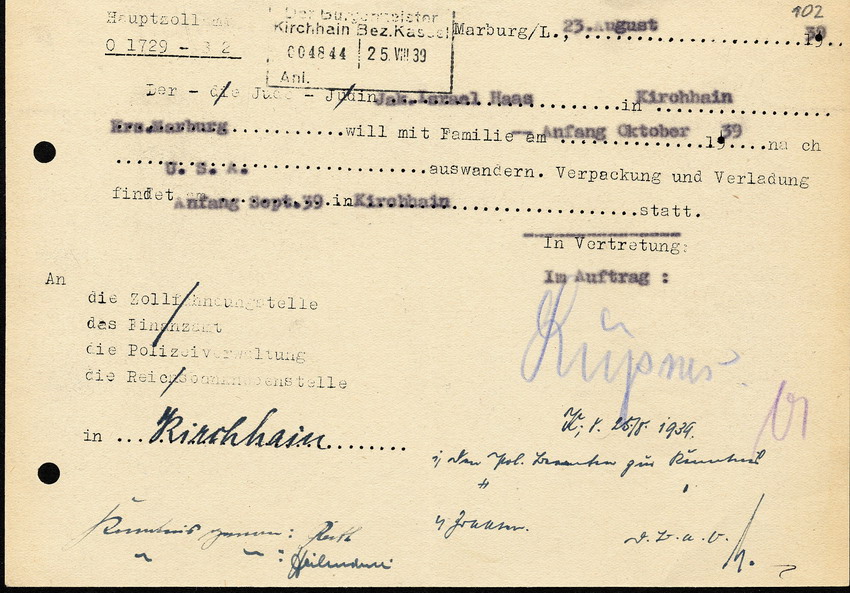 102
Hauptzollamt
O 1729 - B 2
Der Bürgermeister
Kirchhain Bez.Kassel
004844 25.VIII 39
Anl.
Marburg/L., 23.August 1939
Der - die Jude - Jüdin Jak.Israel Haas in Kirchhain
Krs.Marburg will mit Familie am Anfang Oktober 1939 nach
U. S. A. auswandern. Verpackung und Verladung
findet am Anfang Sept.39 in Kirchhain statt.
In Vertretung:
Im Auftrag :
An
die Zollfahndungstelle
das Finanzamt
die Polizeiverwaltung
die Reichsbanknebenstelle
in ... Kirchhain
K, d. 25/8. 1939.
1, Den Pol. Beamten zur Kenntnis
2,
Kenntnis genommen: